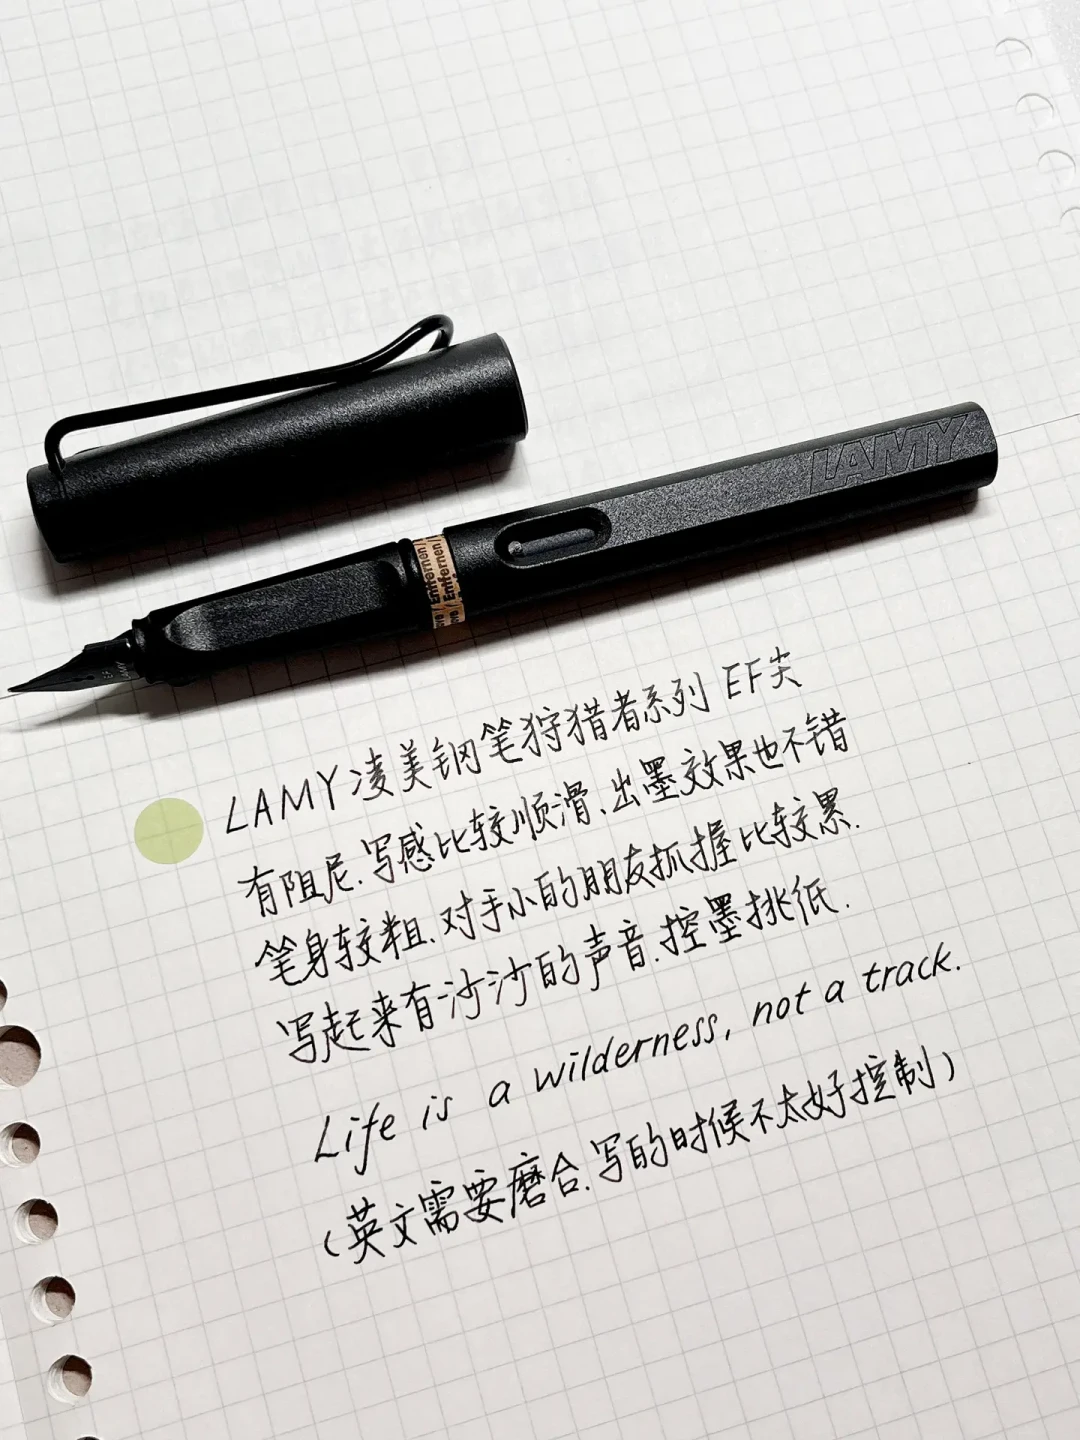 LAMY
Entfernen/
/Entfernen
EF
LAMY
LAMY凌美钢笔狩猎者系列 EF尖
有阻尼.写感比较顺滑、出墨效果也不错
笔身较粗.对手小的朋友抓握比较累.
写起来有沙沙的声音.控墨挑纸.
Life is a wilderness, not a track.
(英文需要磨合.写的时候不太好控制)